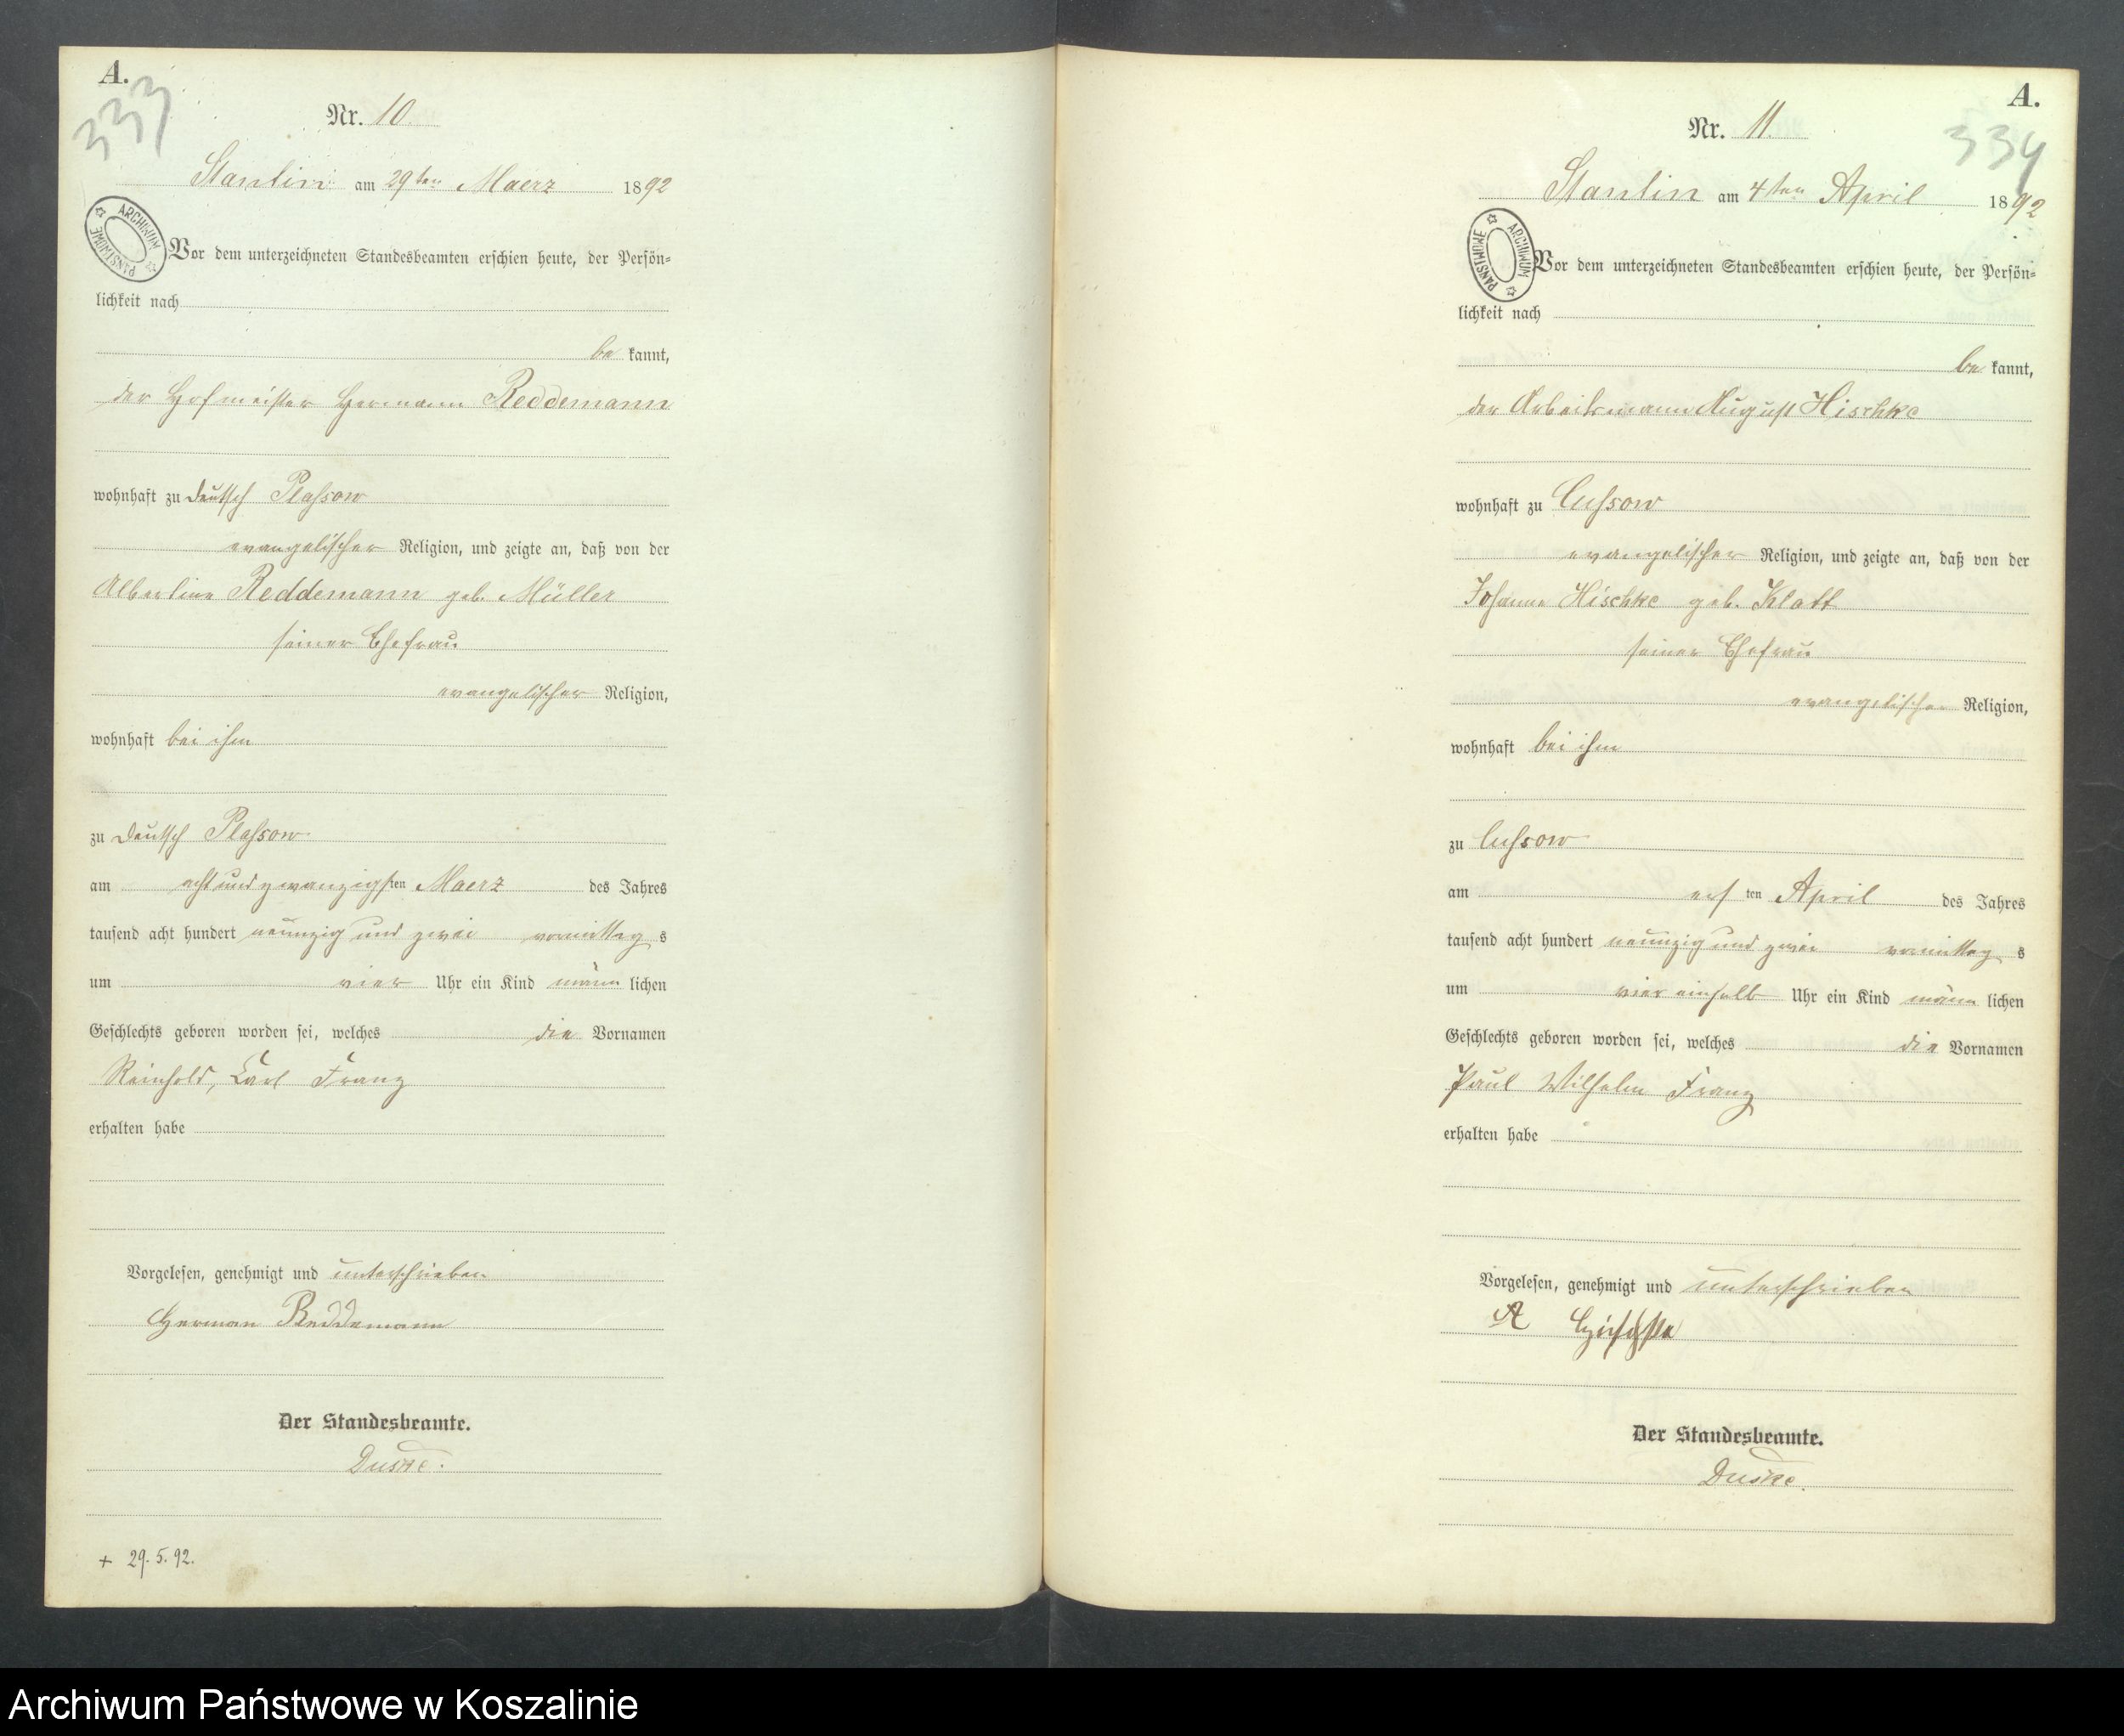 A.
333
Nr. 10.
Stantin am 29ten Maerz 1892
ARCHIWUM PAŃSTWOWE
Vor dem unterzeichneten Standesbeamten erschien heute, der Persön=
lichkeit nach
be kannt,
der Hofmeister Hermann Reddemann
wohnhaft zu Deutsch Plassow
evangelischer Religion, und zeigte an, daß von der
Albertine Reddemann geb. Müller
seiner Ehefrau
evangelischer Religion,
wohnhaft bei ihm
zu Deutsch Plassow
am acht und zwanzigsten Maerz des Jahres
tausend acht hundert neunzig und zwei vormittag s
um vier Uhr ein Kind männ lichen
Geschlechts geboren worden sei, welches die Vornamen
Reinhold, Carl Franz
erhalten habe
Vorgelesen, genehmigt und unterschrieben
Herman Reddemann
Der Standesbeamte.
Duske.
+ 29.5.92.
A.
334
Nr. 11.
Stantin am 4ten April 1892
ARCHIWUM PAŃSTWOWE
Vor dem unterzeichneten Standesbeamten erschien heute, der Persön=
lichkeit nach
be kannt,
der Arbeitsmann August Hischke
wohnhaft zu Cussow
evangelischer Religion, und zeigte an, daß von der
Johanne Hischke geb. Klatt
seiner Ehefrau
evangelischer Religion,
wohnhaft bei ihm
zu Cussow
am ers ten April des Jahres
tausend acht hundert neunzig und zwei vormittag s
um vier einhalb Uhr ein Kind männ lichen
Geschlechts geboren worden sei, welches die Vornamen
Paul Wilhelm Franz
erhalten habe
Vorgelesen, genehmigt und unterschrieben
A Hischke
Der Standesbeamte.
Duske.
Archiwum Państwowe w Koszalinie